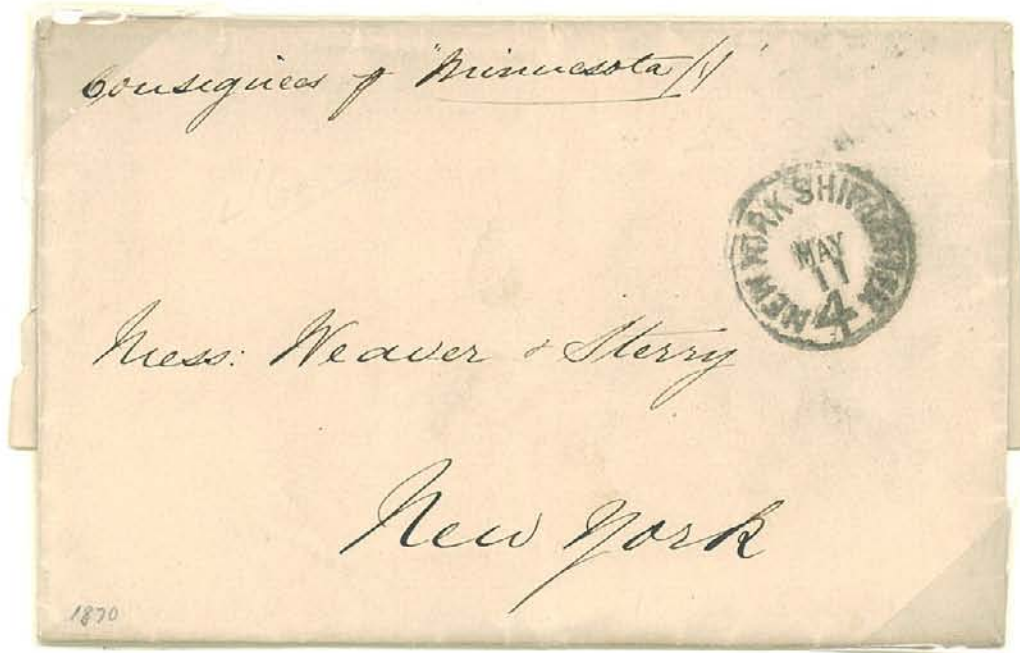 Consignees of "Minnesota"
NEW YORK SHIP LETTER
MAY
11
4
Mess: Weaver & Sterry
New York
1870